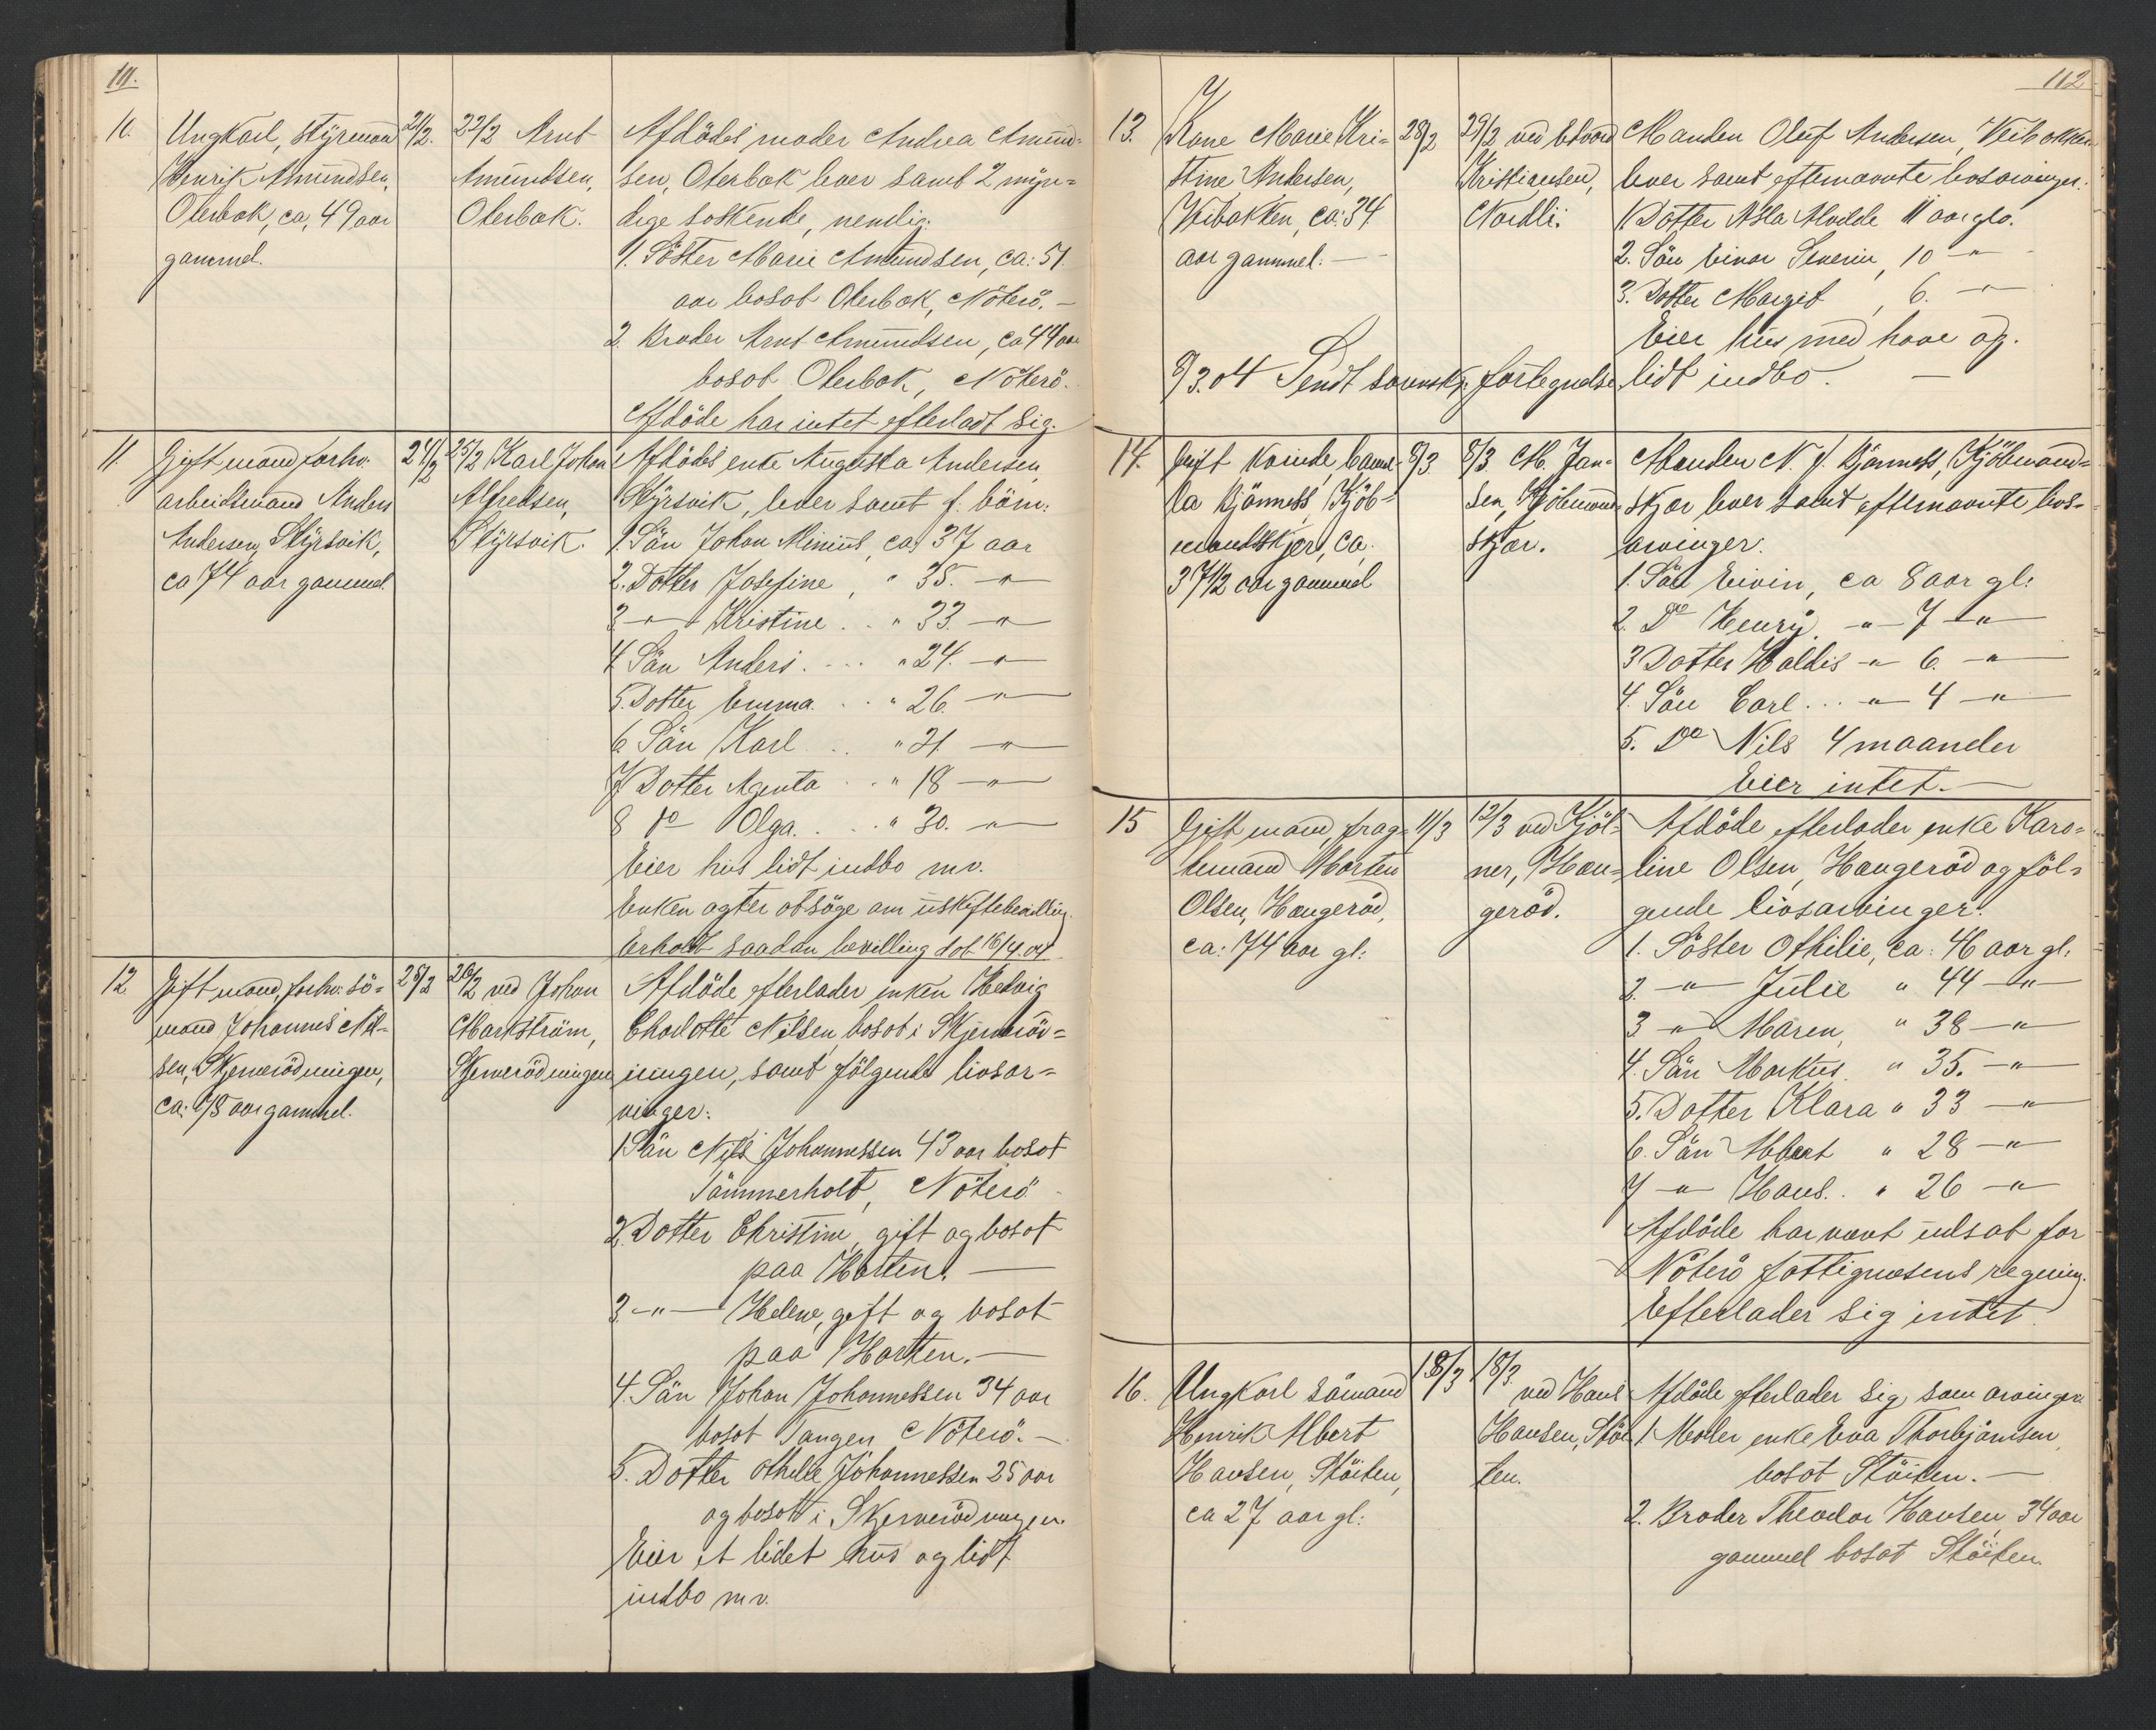 111.
10.
Ungkarl, styrmand
Henrik Amundsen,
Oterbæk, ca. 49 aar
gammel.
21/2.
22/2 Arnt
Amundsen,
Oterbæk.
Afdödes moder Andrea Amund-
sen, Oterbæk lever samt 2 myn-
dige söskende, nemlig:
1. Söster Marie Amundsen, ca: 51
aar bosat Oterbæk, Nöterö. —
2. Broder Arnt Amundsen, ca 44 aar
bosat Oterbæk, Nöterö.
Afdöde har intet efterladt sig.
11.
Gift mand forhv.
arbeidsmand Anders
Andersen, Styrsvik,
ca 74 aar gammel.
24/2
25/2 Karl Johan
Alfredsen,
Styrsvik.
Afdödes enke Augusta Andersen,
Styrsvik, lever samt f. börn:
1. Sön Johan Minius, ca 37 aar
2. Dotter Josefine, " 35. —"—
3 —"— Kristine . . " 33. —"—
4. Sön Anders . . . . " 24. —"—
5. Dotter Emma . . . " 26. —"—
6. Sön Karl . . " 21. —"—
7. Dotter Agenta . . " 18 —"—
8 do Olga. . . . " 30. —"—
Eier hus lidt indbo m.v.
Enken agter at söge om uskiftebevilling.
Erholdt saadan bevilling dat. 16/4.04
12.
Gift mand, forhv. sö-
mand Johannes Nil-
sen, Skjerverödningen,
ca: 78 aar gammel.
25/2
26/2 ved Johan
Markström,
Skjerverödningen
Afdöde efterlader enken Hedvig
Charlotte Nilsen, bosat i Skjerveröd-
ningen, samt fölgende livsar-
vinger:
1. Sön Nils Johannessen 43 aar bosat
Tömmerholt, Nöterö
2. Dotter Christine, gift og bosat
paa Horten. —
3 —"— Helene, gift og bosat
paa Horten. —
4. Sön Johan Johannessen 34 aar
bosat Tangen Nöterö. —
5. Dotter Othilie Johannessen 25 aar
og bosatt i Skjerverödningen.
Eier et lidet hus og lidt
indbo m.v.
112
13.
Kone Marie Kri-
stine Andersen,
Veibakken, ca: 34
aar gammel. —
28/2
29/2 ved Edvard
Kristiansen,
Nordli.
Manden Oluf Andersen, Veibakken
lever samt efternævnte livsarvinger:
1. Dotter Asla Modde 11 aar gla.
2. Sön Einar Severin, 10 —"—
3. Dotter Margit, 6. —"—
Eier hus med have og
lidt indbo. —
8/3.04 Sendt sorenskr. fortegnelse
14.
Gift kvinde, Camil-
la Bjönness, Kjöb-
mandskjær, ca.
37 1/2 aar gammel
8/3
8/3 M. Jan-
sen, Kjöbmand-
skjær.
Manden N. J. Bjönness, Kjöbmand-
skjær lever samt eftermævnte livs-
arvinger:
1. Sön Eivin, ca 8 aar gl.
2. Do Henry, —"— 7 —"—
3 Dotter Haldis —"— 6. —"—
4. Sön Carl . . . —"— 4 —"—
5. Do Nils 4 maaneder
Eier intet. —
15
Gift mand, frag-
temand Morten
Olsen, Haugeröd,
ca: 74 aar gl:
11/3
12/3 ved Kjöl-
ner, Hau-
geröd.
Afdöde efterlader enke Karo-
line Olsen, Haugeröd og föl-
gende livsarvinger:
1. Söster Othilie, ca: 46 aar gl.
2. —"— Julie " 44 —"—
3 —"— Maren, " 38 —"—
4. Sön Markus " 35. —"—
5. Dotter Klara " 33 —"—
6. Sön Albert " 28 —"—
7 —"— Hans. . " 26 —"—
Afdöde har været udsat for
Nöterö fattigvæsens regning.
Efterlader sig intet.
16.
Ungkarl sömand
Henrik Albert
Hansen, Stöiten,
ca 27 aar gl:
18/3
18/3
ved Hans
Hansen, Stöi-
ten.
Afdöde efterlader sig som arvinger
1. Moder enke Eva Thorbjörnsen,
bosat Stöiten. —
2. Broder Theodor Hansen 34 aar
gammel bosat Stöiten.